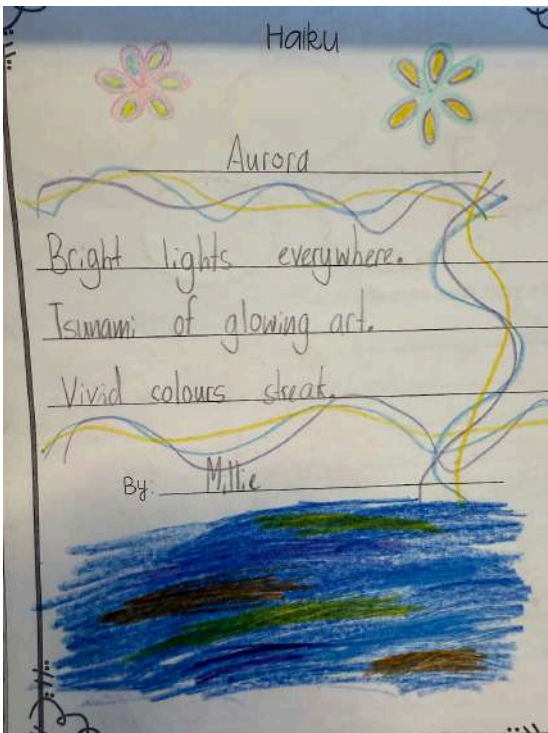 Haiku
Aurora
Bright lights everywhere.
Tsunami of glowing art.
Vivid colours streak.
By: Millie